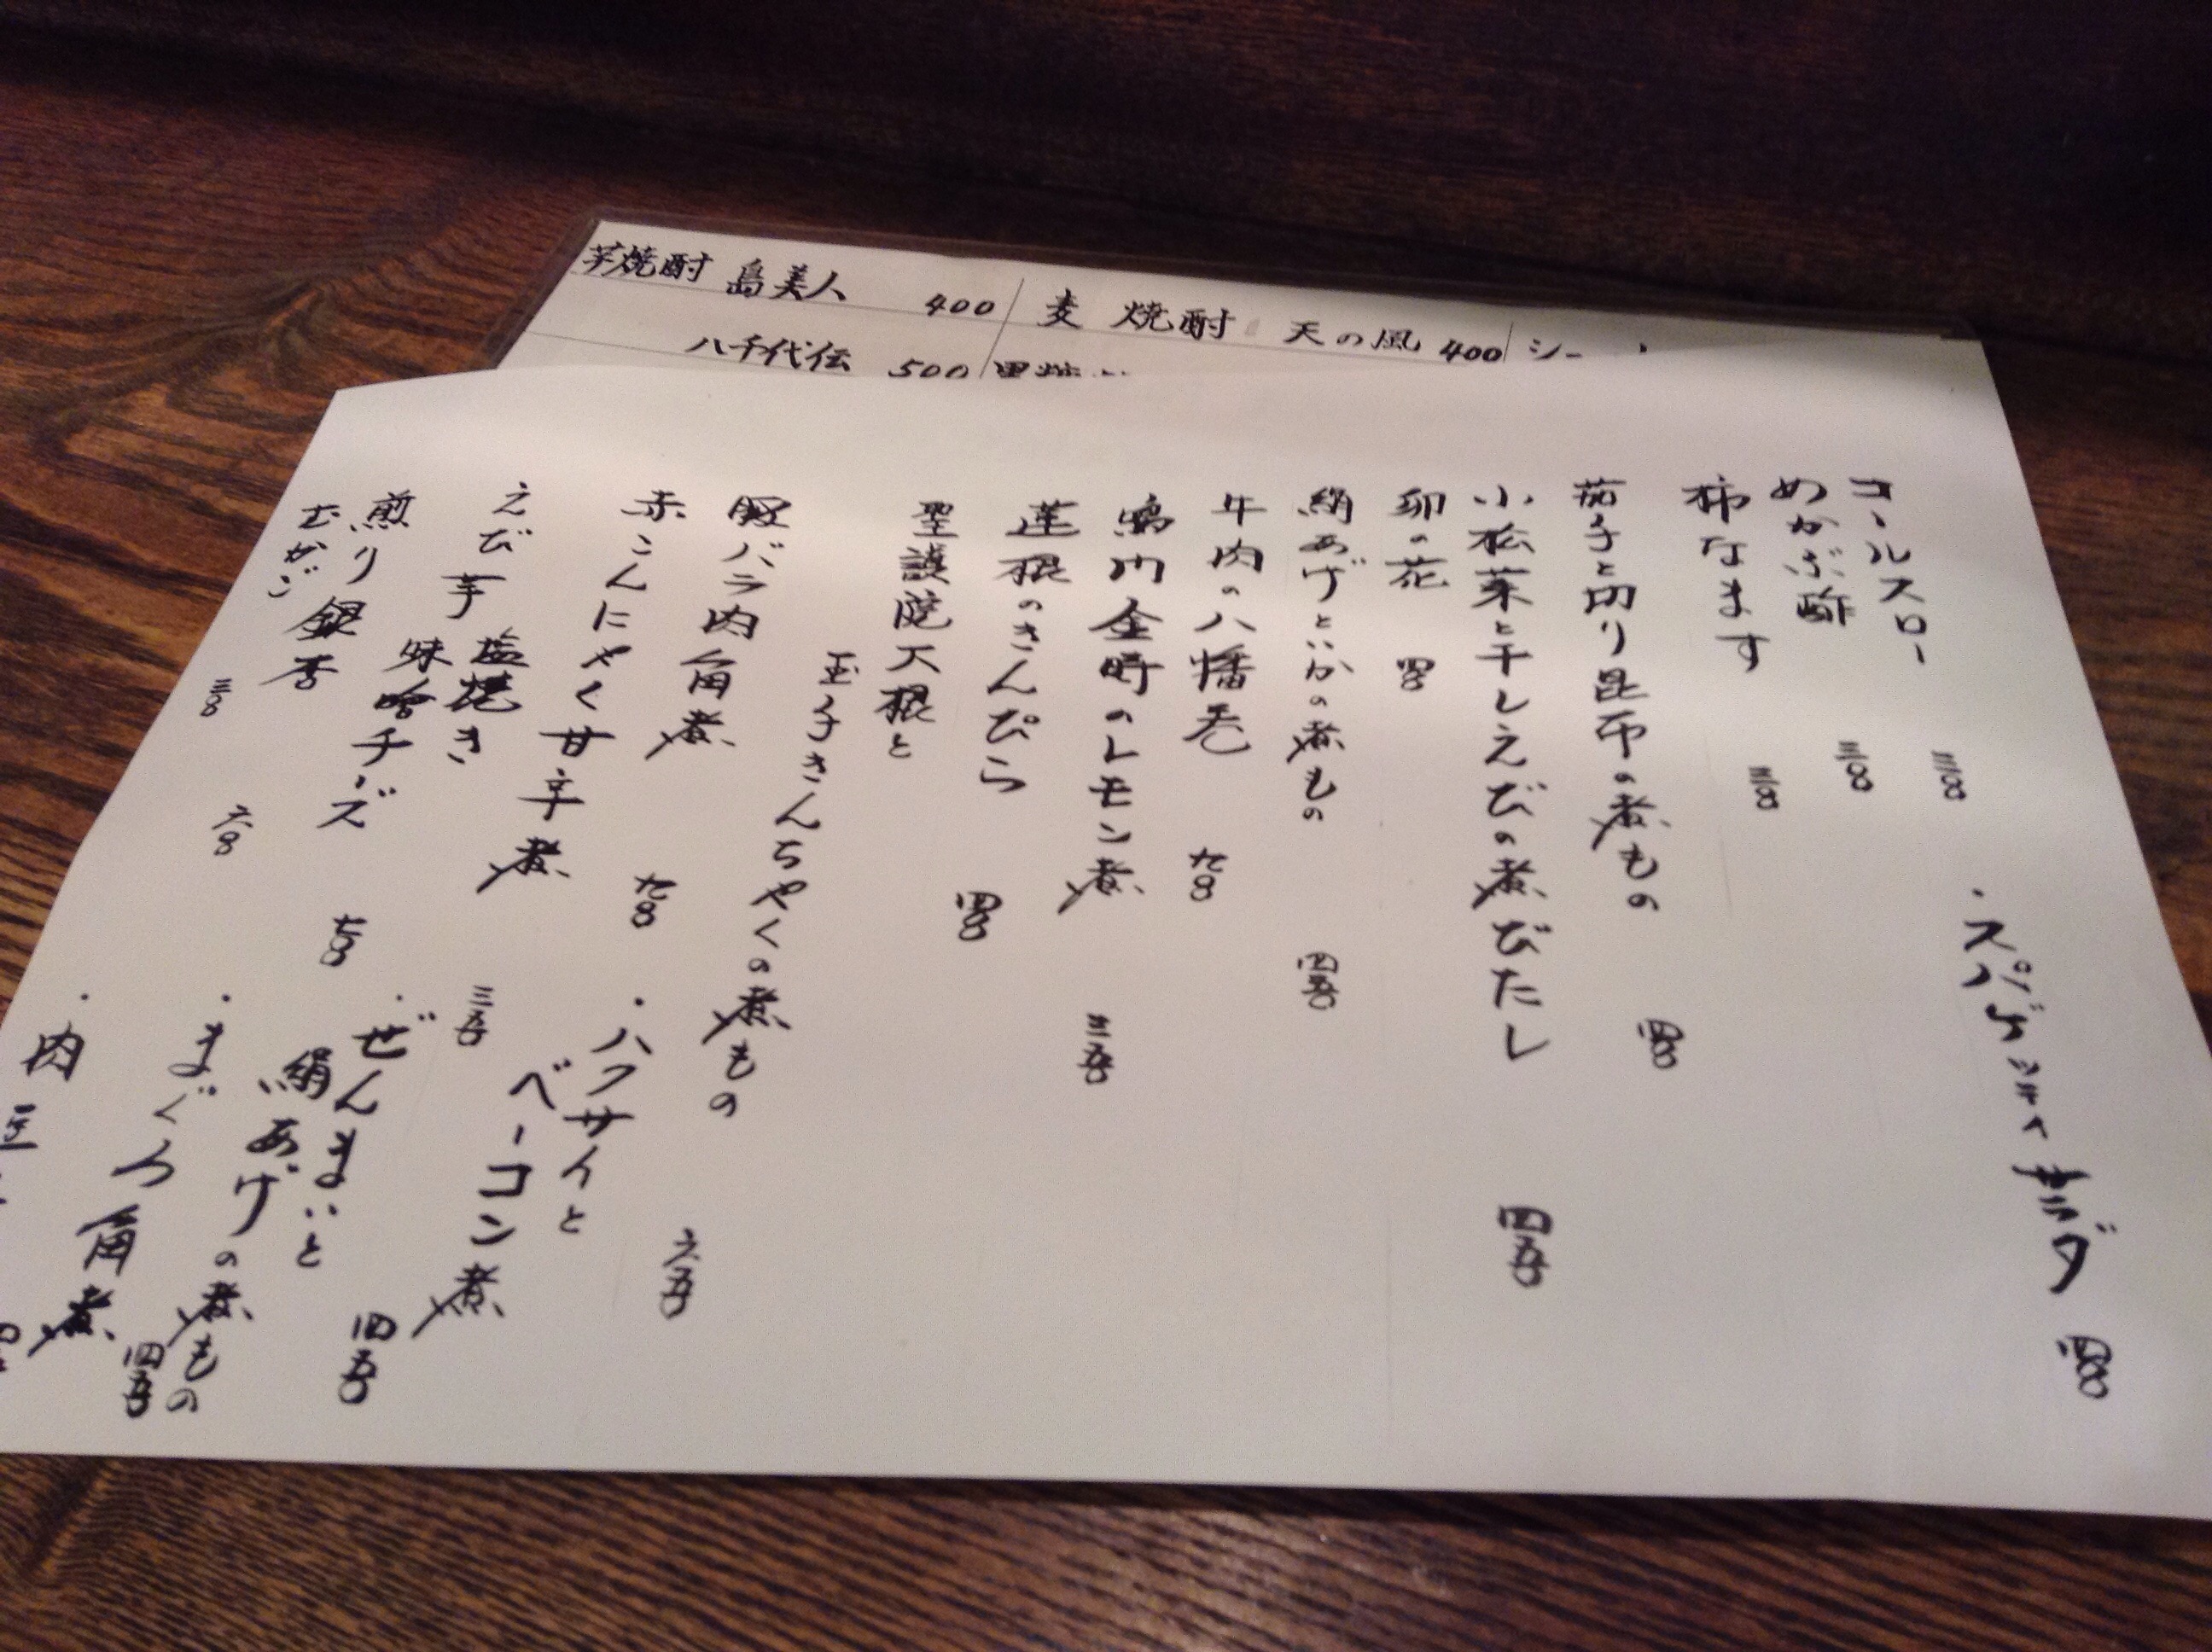 芋焼酎 島美人 400 麦焼酎 天の風 400
八千代伝 500
コールスロー 三〇〇
めかぶ酢 三〇〇
柿なます 三〇〇
茄子と切り昆布の煮もの 四〇〇
小松菜と干しえびの煮びたし 四五〇
卯の花 四〇〇
絹あげといかの煮もの 四五〇
牛肉の八幡巻 九〇〇
鳴門金時のレモン煮 三五〇
蓮根のきんぴら 四〇〇
聖護院大根と
玉子きんちゃくの煮もの 六五〇
豚バラ肉角煮 九〇〇
赤こんにゃく甘辛煮 三五〇
えび芋 塩焼き 七〇〇
味噌チーズ
煎り銀杏 六〇〇
むかご 三〇〇
・スパゲッティサラダ 四〇〇
・ハクサイと
ベーコン煮 四五〇
・ぜんまいと
絹あげの煮もの 四五〇
・まぐろ角煮
・肉豆